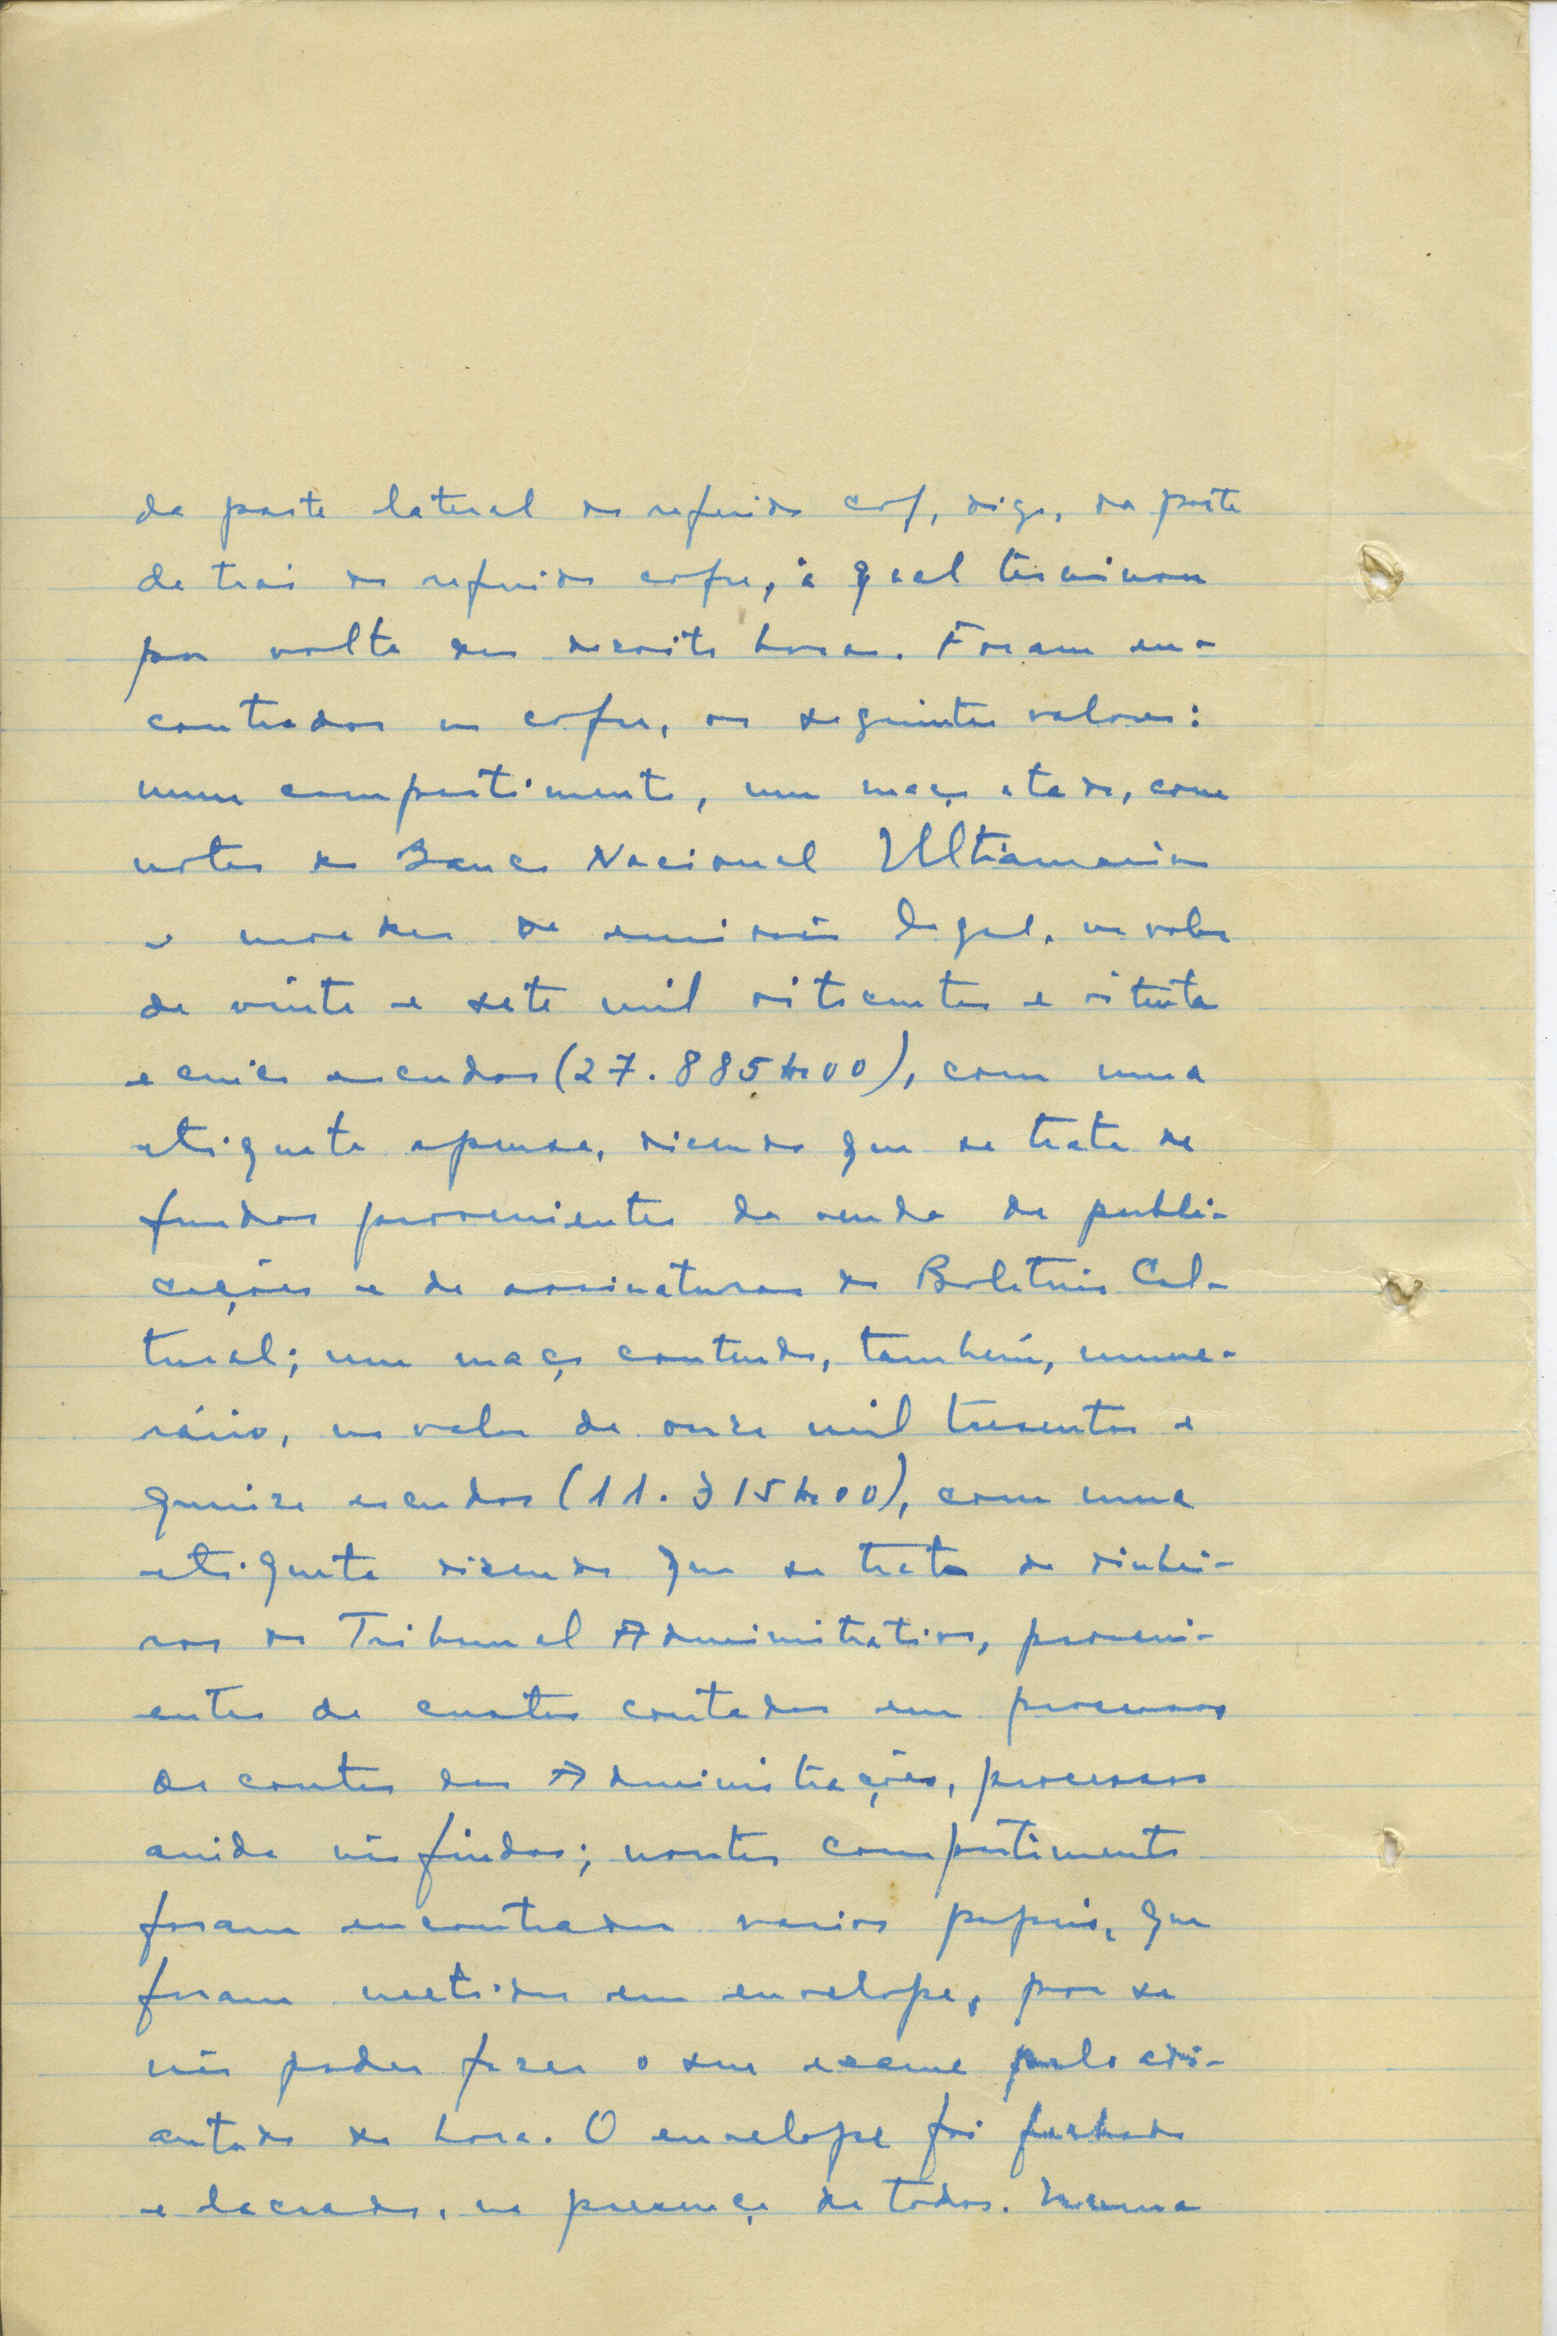 da parte lateral do referido cof, digo, da parte
de trás do referido cofre, a qual terminou
por volta das dezoito horas. Foram en-
contrados no cofre, os seguintes valores:
num compartimento, um maço atado, com
notas do Banco Nacional Ultramarino
e moedas de emissão legal, no valor
de vinte e sete mil oitocentos e oitenta
e cinco escudos (27.885$00), com uma
etiqueta apensa, dizendo que se trata de
fundos provenientes da venda de publi-
cações e de assinaturas do Boletim Cul-
tural; um maço contendo, também, nume-
rário, no valor de onze mil trezentos e
quinze escudos (11.315$00), com uma
etiqueta dizendo que se trata de dinhei-
ros do Tribunal Administrativo, proveni-
entes de custas contadas em processos
de contas das Administrações, processos
ainda não findos; noutro compartimento
foram encontrados varios papeis, que
foram metidos em envelope, por se
não poder fazer o seu exame pelo adi-
antado da hora. O envelope foi fechado
e lacrado, na presença de todos. Numa